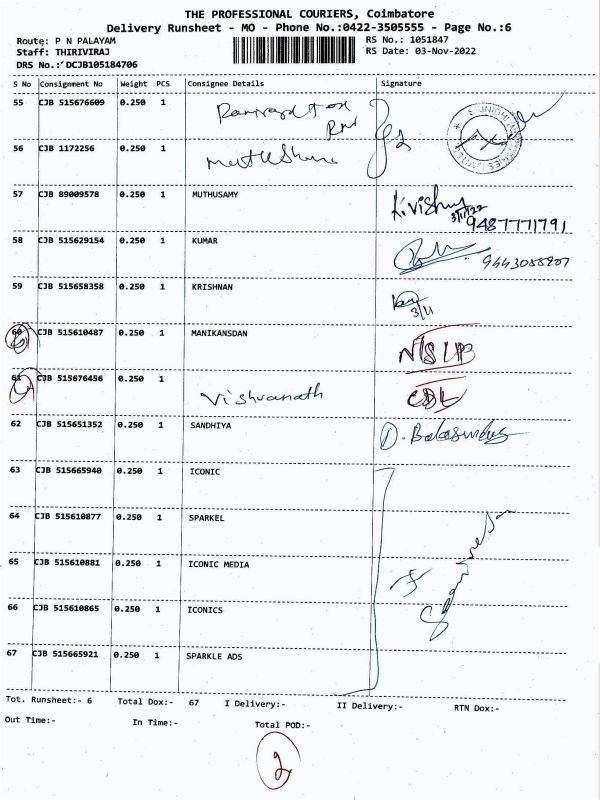 THE PROFESSIONAL COURIERS, Coimbatore
Delivery Runsheet - MO - Phone No.:0422-3505555 - Page No.:6
Route: P N PALAYAM RS No.: 1051847
Staff: THIRIVIRAJ RS Date: 03-Nov-2022
DRS No.: DCJB105184706
S No Consignment No Weight PCS Consignee Details Signature
55 CJB 515676609 0.250 1
56 CJB 1172256 0.250 1
57 CJB 89009578 0.250 1 MUTHUSAMY K.Vishnu
3/11/22
9487771791
58 CJB 515629154 0.250 1 KUMAR
59 CJB 515658358 0.250 1 KRISHNAN
3/11
60 CJB 515610487 0.250 1 MANIKANSDAN
61 CJB 515676456 0.250 1 Vishvanath CDL
62 CJB 515651352 0.250 1 SANDHIYA
63 CJB 515665940 0.250 1 ICONIC
64 CJB 515610877 0.250 1 SPARKEL
65 CJB 515610881 0.250 1 ICONIC MEDIA
66 CJB 515610865 0.250 1 ICONICS
67 CJB 515665921 0.250 1 SPARKLE ADS
Tot. Runsheet:- 6 Total Dox:- 67 I Delivery:- II Delivery:- RTN Dox:-
Out Time:- In Time:- Total POD:-
2